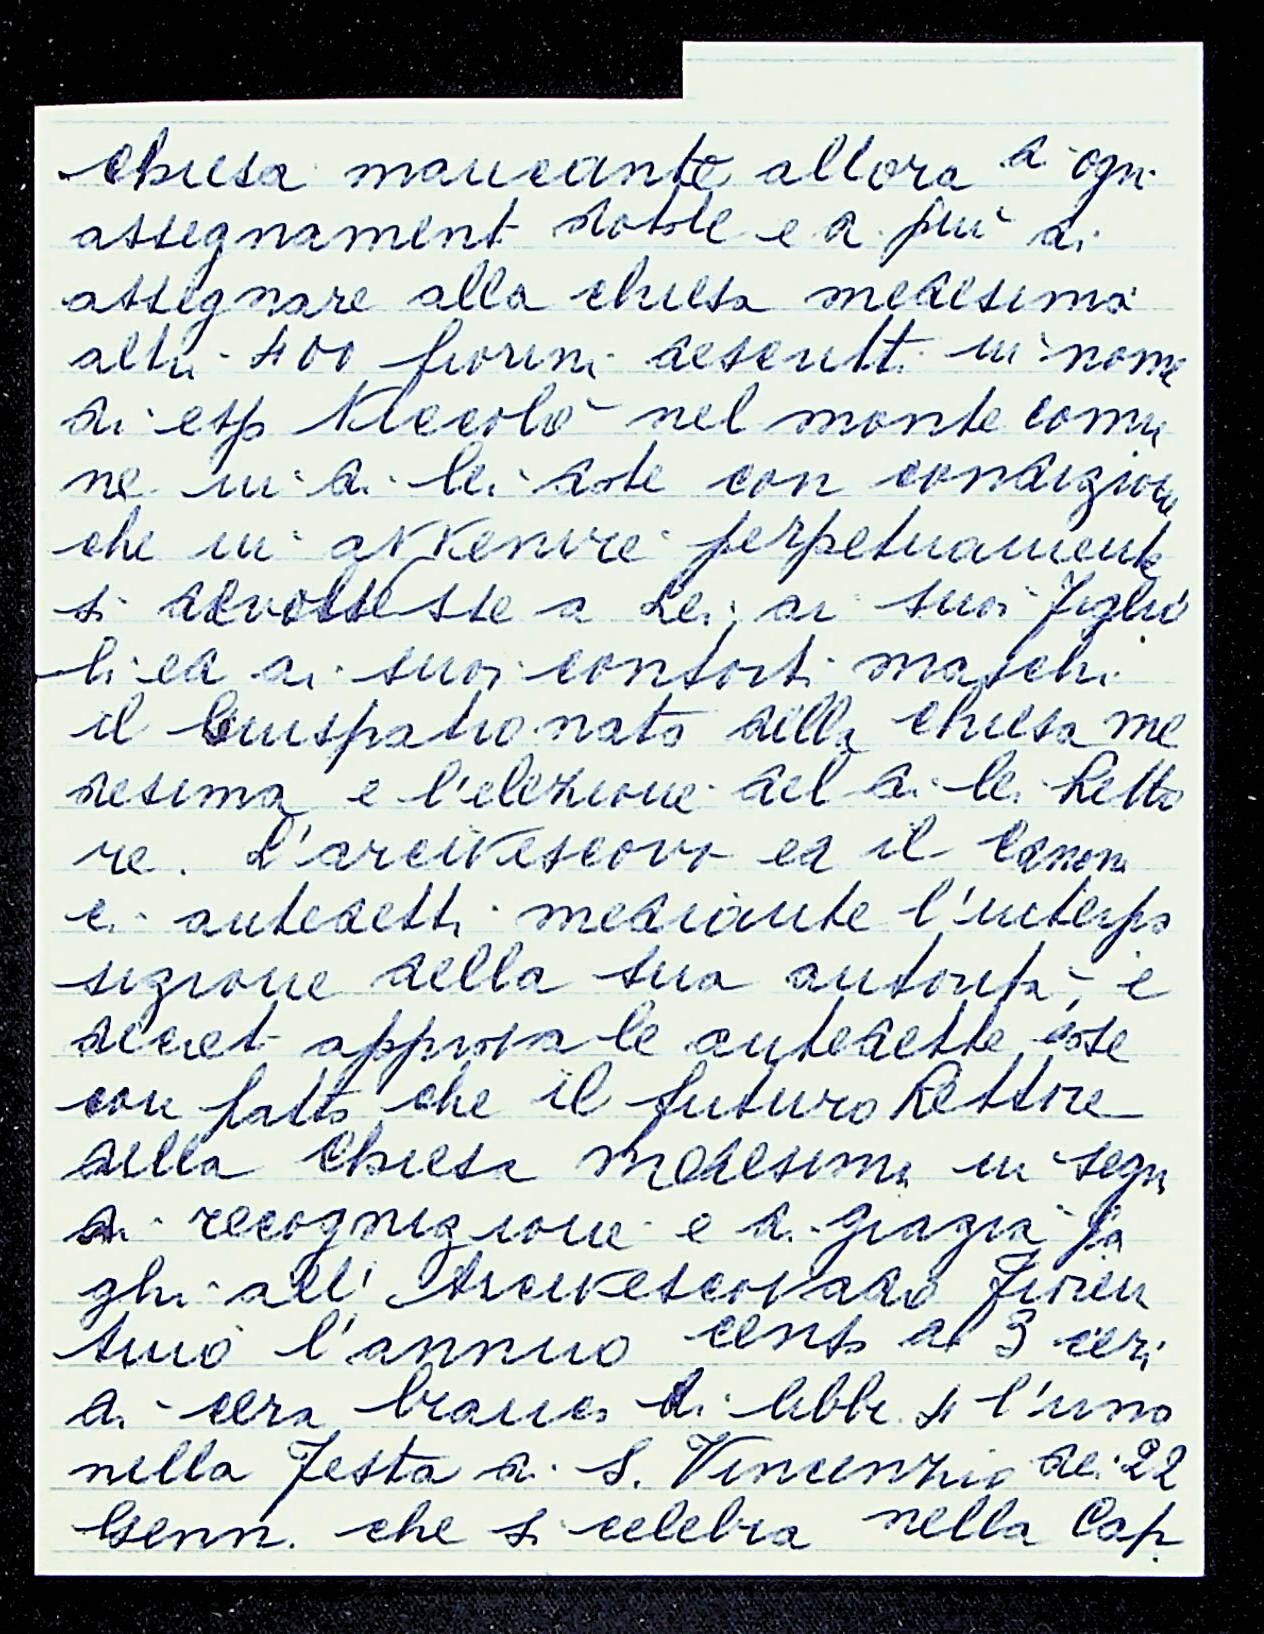 chiesa mancante allora d'ogni
assegnament dotale e di più di
assegnare alla chiesa medesima
altri 400 fiorini descritti in nome
di esso Niccolò nel monte comu
ne in di lei dote con condizione
che in avvenire perpetuamente
si devolvesse a Lei, ai suoi Figliuo
li ed ai suoi consorti maschi
il Giuspatronato della chiesa me
desima e l'elezione del di lei Retto
re. L'arcivescovo ed il Canoni
ci antedetti mediante l'interpo
sizione della sua autorità, e
decret approva le antedette cose
con patto che il futuro Rettore
della Chiesa medesima in segn
di recognizione e di grazia pa
ghi all'Arcivescovado Fioren
tino l'annuo censo di 3 ceri
di cera bianca di libbr. 4 l'uno
nella Festa di S. Vincenzio dei 22
Genn. che si celebra nella Cap